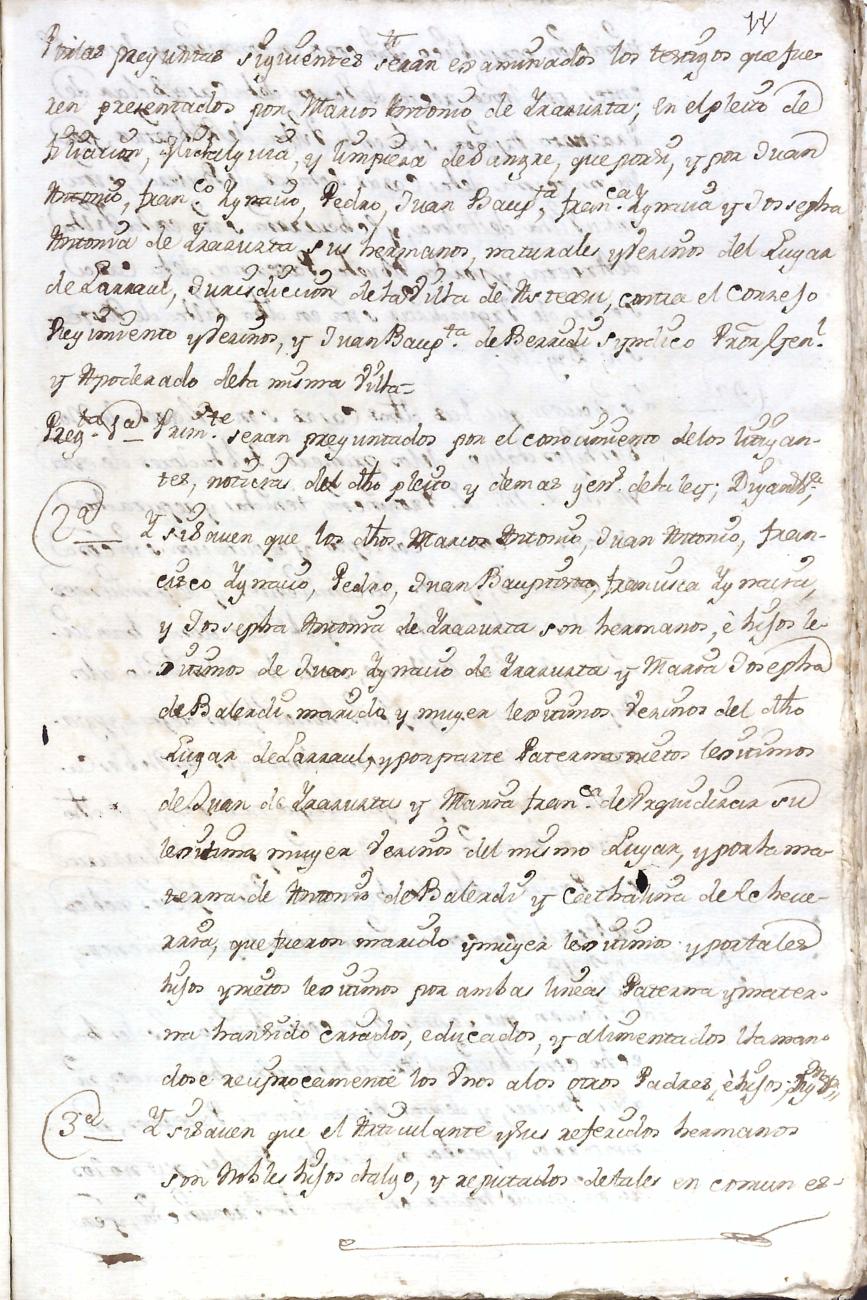 Por las preguntas siguientes seran examinados los testigos que fue-
ren presentados por Marcos Antonio de Yrarurta; en el pleito de
filiacion, Hidalguia, y limpieza de Sangre, que por si, y por Juan
Antonio, Fran.co Ygnacio, Pedro, Juan Baup.ta, Fran.ca Ygnacia y Jossepha
Antonia de Yrarurta sus hermanos, naturales y vezinos del Lugar
de Larraul, Jurisdicion de la Villa de Asteasu, contra el Conzejo
Regimiento y vezinos, y Juan Baup.ta de Berridi Syndico Pror Gen.l
y Apoderado de la misma Villa=
Preg.ta 1a Prim.te seran preguntados por el conocimiento de los litigan-
tes, noticias del dho pleito y demas gen.s de la ley; Digan &.a
2a Y si saven que los dhos Marcos Antonio, Juan Antonio, Fran-
cisco Ygnacio, Pedro, Juan Bauptista, Francisca Ygnacia,
y Jossepha Antonia de Yrarurta son hermanos, è hijos le-
xitimos de Juan Ygnacio de Yrarurta y Maria Josepha
de Balerdi marido y muger lexitimos vezinos del dho
Lugar de Larraul, y por parte Paterna nietos lexitimos
de Juan de Yrarurta y Maria Fran.ca de Yzquidizar su
lexitima muger vezinos del mismo Lugar, y por la ma-
terna de Antonio de Balerdi y Cathalina de Echeve-
rria, que fueron marido y muger lexitimos y por tales
hijos y nietos lexitimos por ambas lineas Paterna y mater-
na han sido criados, educados, y alimentados llaman-
dose reciprocamente los vnos a los otros Padres, è hijos;
3a Y si saven que el Articulante y sus referidos hermanos
son Nobles hijos dalgo, y reputados de tales en comun es-